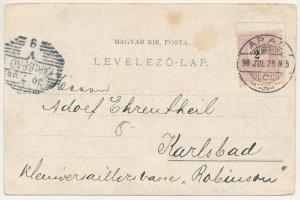 MAGYAR KIR. POSTA.
LEVELEZŐ-LAP.
ARAD
98 JUL 28
KARLSBAD
Adolf Ehrentheil
Karlsbad
Kleinversaillerstrasse „Robinson"